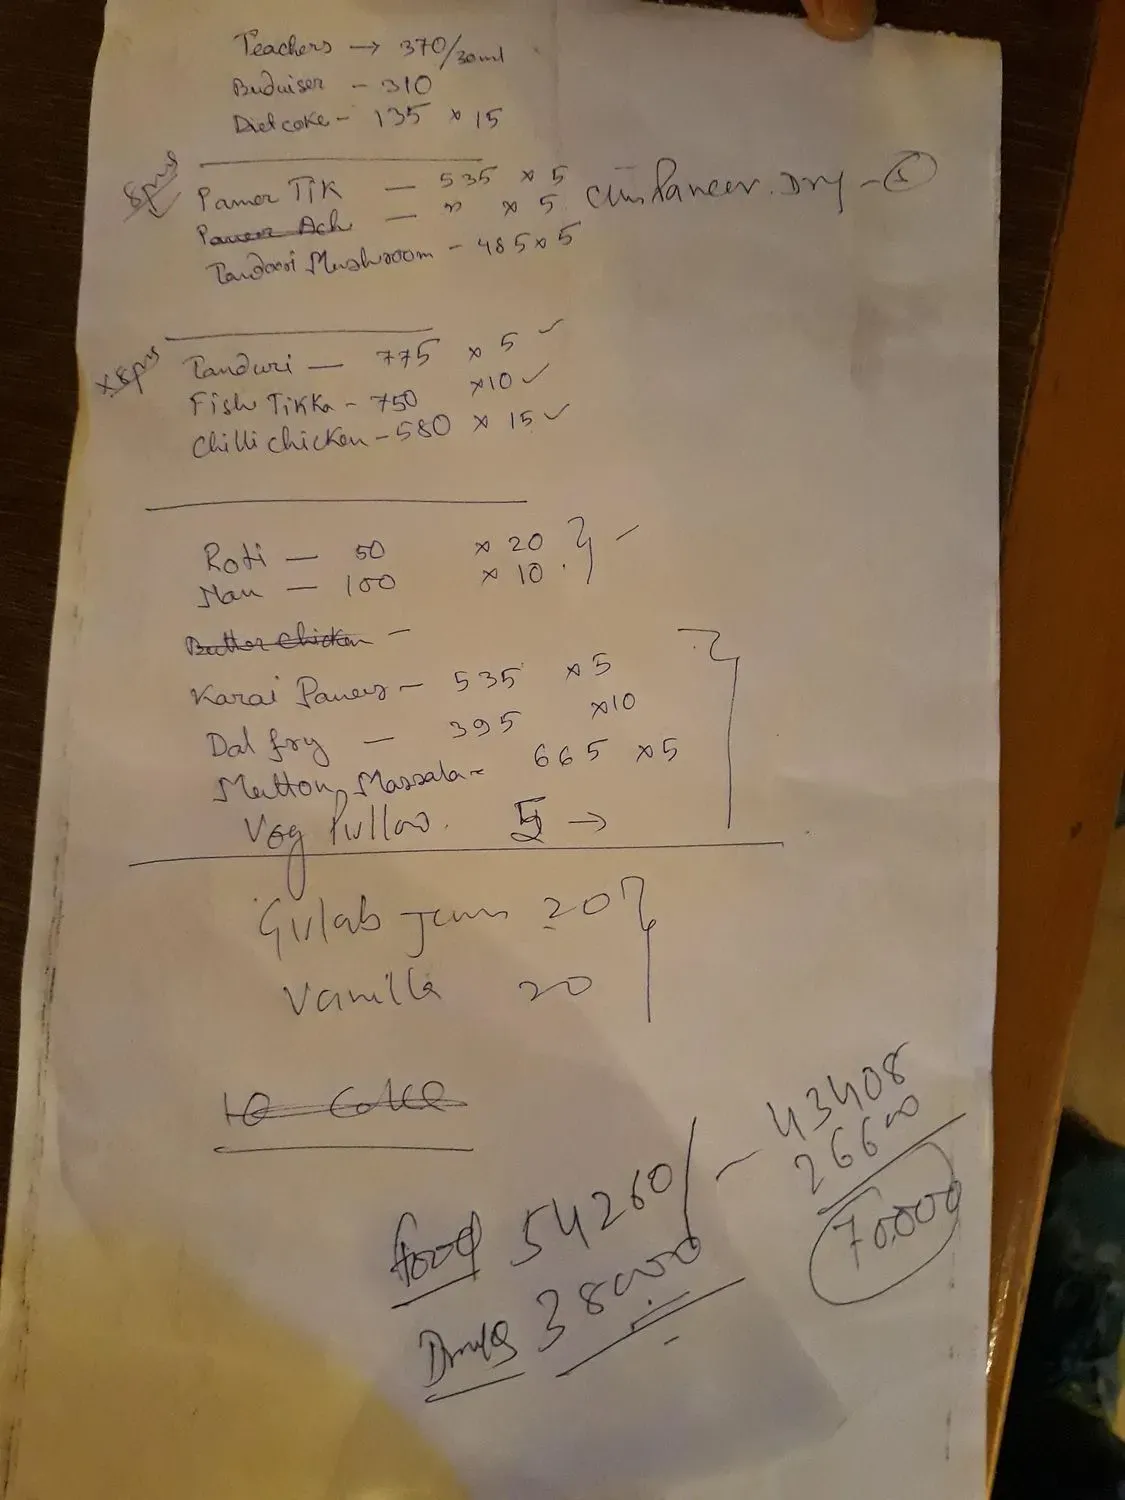 Teachers → 370/30ml
Buduiser - 310
Diet coke - 135 x 15
8pcs
Paneer Tik — 535 x 5
Paneer Ach — " x 5 Paneer. Dry - 5
Tandoori Mushroom - 485 x 5
x 8pcs
Tanduri — 775 x 5 ✓
Fish Tikka - 750 x10 ✓
Chilli chicken - 580 x 15 ✓
Roti — 50 x 20
Nan — 100 x 10
Butter Chicken —
Karai Paneer - 535 x 5
Dal fry — 395 x10
Mutton Massala - 665 x 5
Veg Pullao. 5 →
Gulab Jam 20
Vanilla 20
10 Coke
43408
26600
food 54260/ —
70,000
Drinks 38000